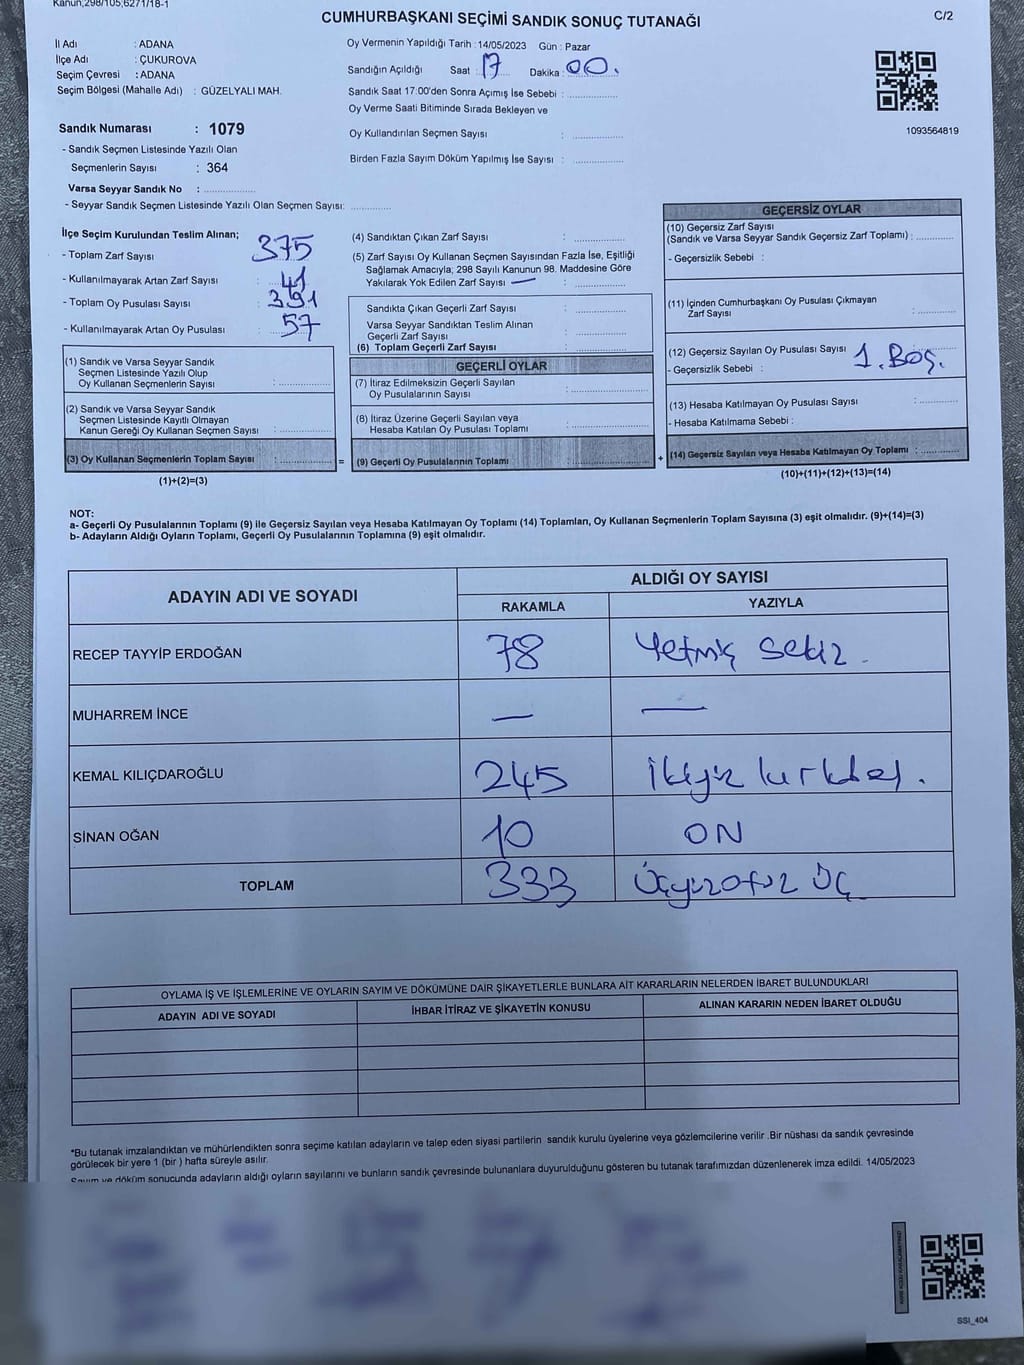 Kanun;298/105;6271/18-1
CUMHURBAŞKANI SEÇİMİ SANDIK SONUÇ TUTANAĞI
C/2
İl Adı : ADANA
İlçe Adı : ÇUKUROVA
Seçim Çevresi : ADANA
Seçim Bölgesi (Mahalle Adı) : GÜZELYALI MAH.
Oy Vermenin Yapıldığı Tarih : 14/05/2023 Gün : Pazar
Sandığın Açıldığı Saat : 17 Dakika : 00.
Sandık Saat 17:00'den Sonra Açımış İse Sebebi :
Oy Verme Saati Bitiminde Sırada Bekleyen ve
Oy Kullandırılan Seçmen Sayısı :
Birden Fazla Sayım Döküm Yapılmış İse Sayısı :
1093564819
Sandık Numarası : 1079
- Sandık Seçmen Listesinde Yazılı Olan
Seçmenlerin Sayısı : 364
Varsa Seyyar Sandık No :
- Seyyar Sandık Seçmen Listesinde Yazılı Olan Seçmen Sayısı:
İlçe Seçim Kurulundan Teslim Alınan;
- Toplam Zarf Sayısı 375
- Kullanılmayarak Artan Zarf Sayısı : 41
- Toplam Oy Pusulası Sayısı : 391
- Kullanılmayarak Artan Oy Pusulası : 57
(1) Sandık ve Varsa Seyyar Sandık
Seçmen Listesinde Yazılı Olup
Oy Kullanan Seçmenlerin Sayısı :
(2) Sandık ve Varsa Seyyar Sandık
Seçmen Listesinde Kayıtlı Olmayan
Kanun Gereği Oy Kullanan Seçmen Sayısı :
(3) Oy Kullanan Seçmenlerin Toplam Sayısı :
(1)+(2)=(3)
=
(4) Sandıktan Çıkan Zarf Sayısı :
(5) Zarf Sayısı Oy Kullanan Seçmen Sayısından Fazla İse, Eşitliği
Sağlamak Amacıyla; 298 Sayılı Kanunun 98. Maddesine Göre
Yakılarak Yok Edilen Zarf Sayısı — :
Sandıkta Çıkan Geçerli Zarf Sayısı :
Varsa Seyyar Sandıktan Teslim Alınan
Geçerli Zarf Sayısı :
(6) Toplam Geçerli Zarf Sayısı :
GEÇERLİ OYLAR
(7) İtiraz Edilmeksizin Geçerli Sayılan
Oy Pusulalarının Sayısı :
(8) İtiraz Üzerine Geçerli Sayılan veya
Hesaba Katılan Oy Pusulası Toplamı :
(9) Geçerli Oy Pusulalarının Toplamı :
+
GEÇERSİZ OYLAR
(10) Geçersiz Zarf Sayısı
(Sandık ve Varsa Seyyar Sandık Geçersiz Zarf Toplamı) :
- Geçersizlik Sebebi :
(11) İçinden Cumhurbaşkanı Oy Pusulası Çıkmayan
Zarf Sayısı :
(12) Geçersiz Sayılan Oy Pusulası Sayısı 1. Boş.
- Geçersizlik Sebebi :
(13) Hesaba Katılmayan Oy Pusulası Sayısı :
- Hesaba Katılmama Sebebi :
(14) Geçersiz Sayılan veya Hesaba Katılmayan Oy Toplamı :
(10)+(11)+(12)+(13)=(14)
NOT:
a- Geçerli Oy Pusulalarının Toplamı (9) ile Geçersiz Sayılan veya Hesaba Katılmayan Oy Toplamı (14) Toplamları, Oy Kullanan Seçmenlerin Toplam Sayısına (3) eşit olmalıdır. (9)+(14)=(3)
b- Adayların Aldığı Oyların Toplamı, Geçerli Oy Pusulalarının Toplamına (9) eşit olmalıdır.
ADAYIN ADI VE SOYADI
ALDIĞI OY SAYISI
RAKAMLA YAZIYLA
RECEP TAYYİP ERDOĞAN 78 Yetmiş Sekiz.
MUHARREM İNCE — —
KEMAL KILIÇDAROĞLU 245 İkiyüz kırkbeş.
SİNAN OĞAN 10 ON
TOPLAM 333 Üçyüzotuz Üç
OYLAMA İŞ VE İŞLEMLERİNE VE OYLARIN SAYIM VE DÖKÜMÜNE DAİR ŞİKAYETLERLE BUNLARA AİT KARARLARIN NELERDEN İBARET BULUNDUKLARI
ADAYIN ADI VE SOYADI İHBAR İTİRAZ VE ŞİKAYETİN KONUSU ALINAN KARARIN NEDEN İBARET OLDUĞU
*Bu tutanak imzalandıktan ve mühürlendikten sonra seçime katılan adayların ve talep eden siyasi partilerin sandık kurulu üyelerine veya gözlemcilerine verilir .Bir nüshası da sandık çevresinde
görülecek bir yere 1 (bir ) hafta süreyle asılır.
Sayım ve döküm sonucunda adayların aldığı oyların sayılarını ve bunların sandık çevresinde bulunanlara duyurulduğunu gösteren bu tutanak tarafımızdan düzenlenerek imza edildi. 14/05/2023
SSI_404